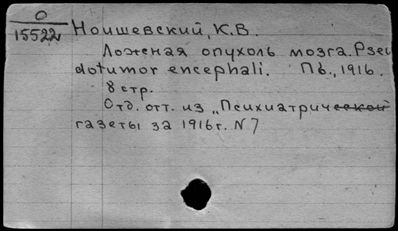 О
15522
Ноишевский, К.В.
Ложная опухоль мозга. Pseu
dotumor encephali. Пб., 1916.
8 стр.
Отд. отт. из „Психиатрической
газеты за 1916г. N7